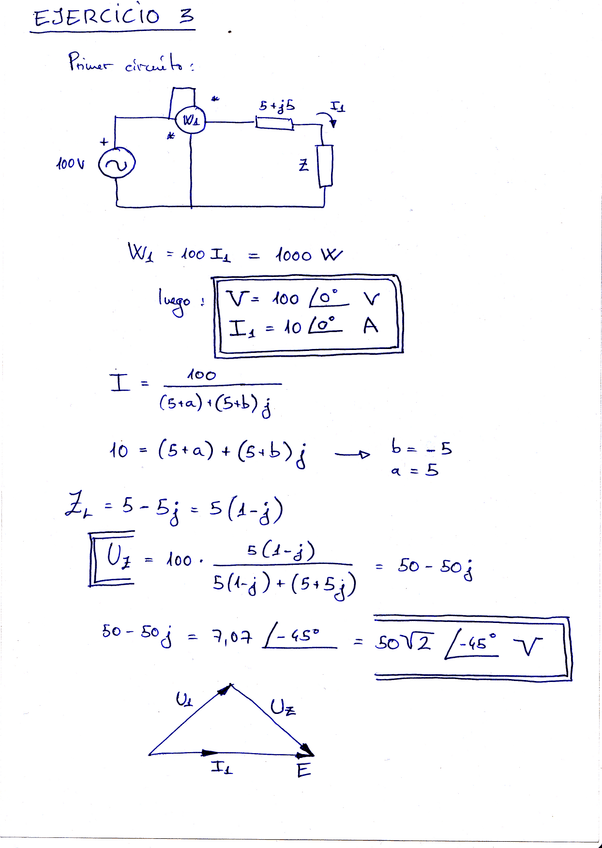 EJERCICIO 3
Primer circuito:
W1 * 5+j5 I1
*
+
100V Z
W1 = 100 I1 = 1000 W
luego: V = 100 /0° V
I1 = 10 /0° A
I = 100 / ((5+a)+(5+b)j)
10 = (5+a) + (5+b)j → b = -5
a = 5
ZL = 5 - 5j = 5(1-j)
UZ = 100 · 5(1-j) / (5(1-j) + (5+5j)) = 50 - 50j
50 - 50j = 7,07 /-45° = 50√2 /-45° V
U1 UZ
I1 E